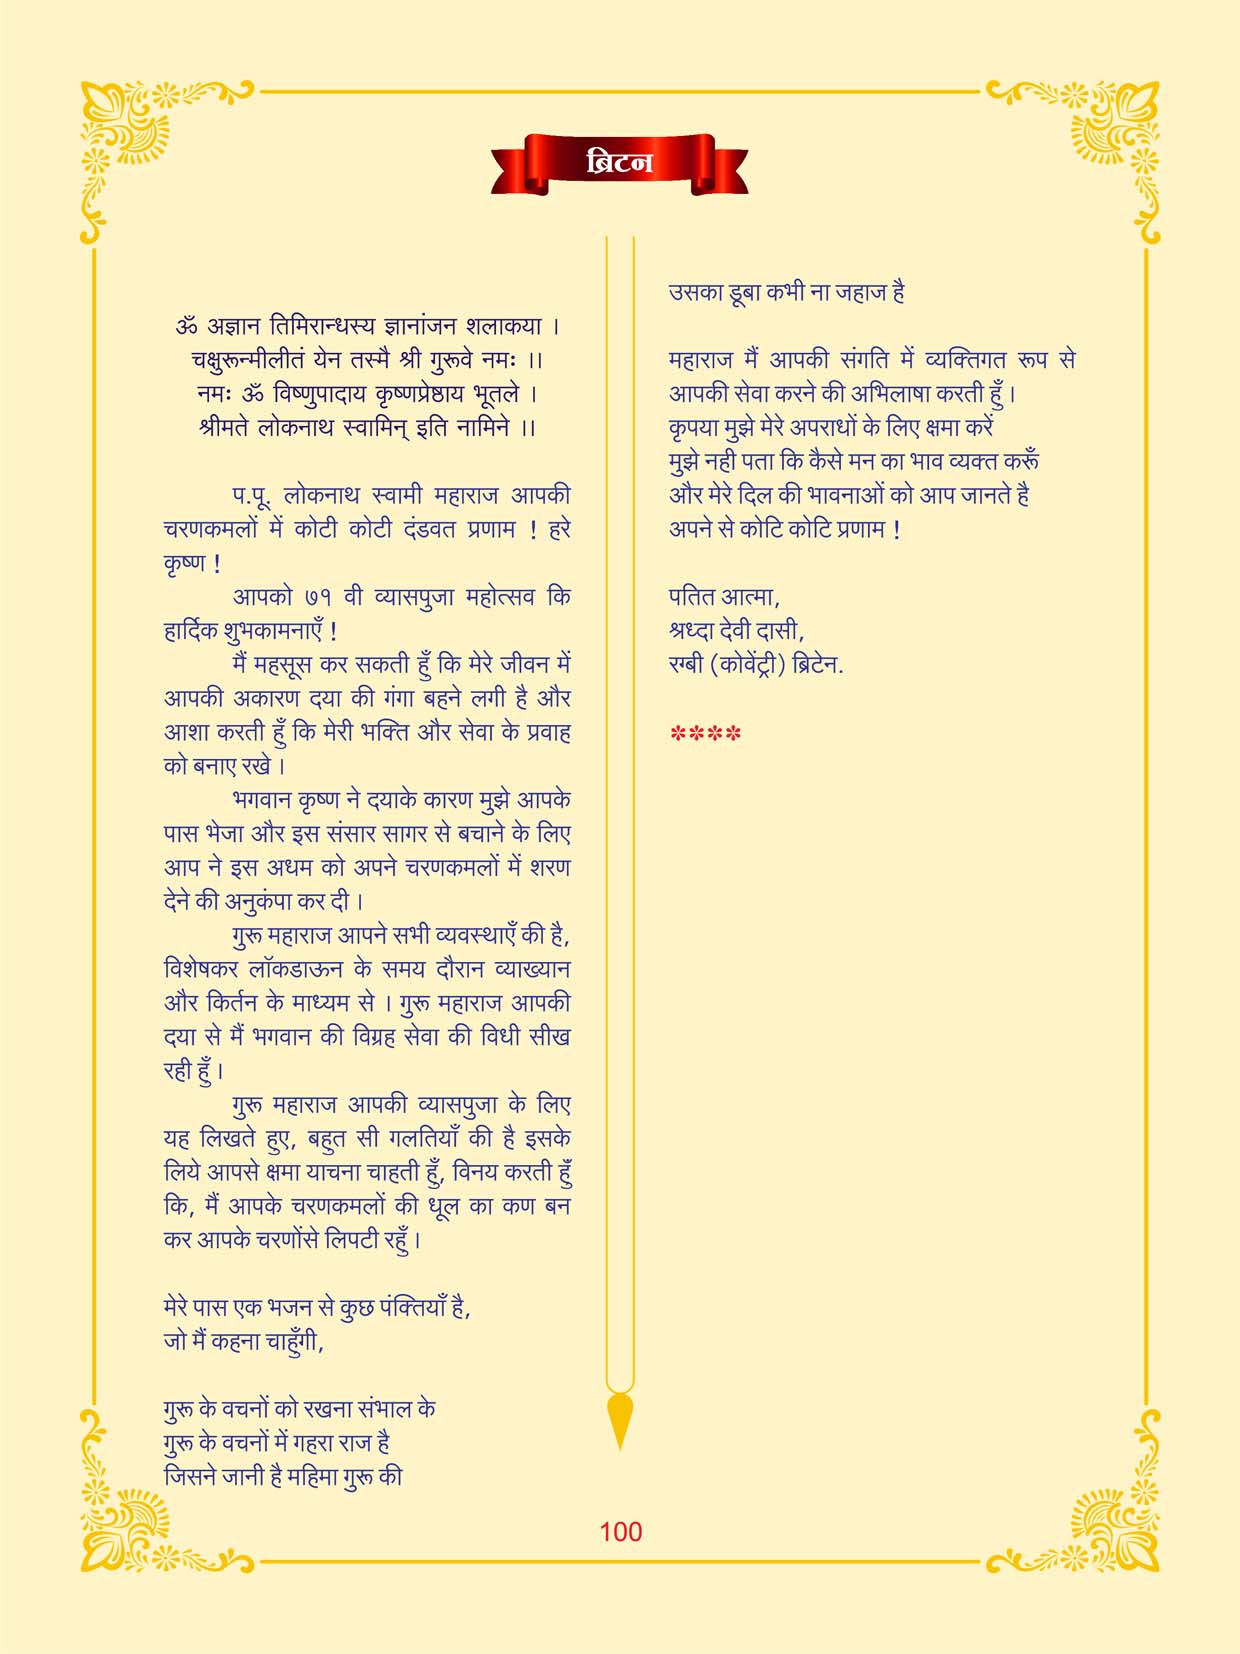 ब्रिटन
ॐ अज्ञान तिमिरान्धस्य ज्ञानांजन शलाकया ।
चक्षुरून्मीलीतं येन तस्मै श्री गुरूवे नमः ।।
नमः ॐ विष्णुपादाय कृष्णप्रेष्ठाय भूतले ।
श्रीमते लोकनाथ स्वामिन् इति नामिने ।।
प.पू. लोकनाथ स्वामी महाराज आपकी
चरणकमलों में कोटी कोटी दंडवत प्रणाम ! हरे
कृष्ण !
आपको ७१ वी व्यासपुजा महोत्सव कि
हार्दिक शुभकामनाएँ !
मैं महसूस कर सकती हुँ कि मेरे जीवन में
आपकी अकारण दया की गंगा बहने लगी है और
आशा करती हुँ कि मेरी भक्ति और सेवा के प्रवाह
को बनाए रखे ।
भगवान कृष्ण ने दयाके कारण मुझे आपके
पास भेजा और इस संसार सागर से बचाने के लिए
आप ने इस अधम को अपने चरणकमलों में शरण
देने की अनुकंपा कर दी ।
गुरू महाराज आपने सभी व्यवस्थाएँ की है,
विशेषकर लॉकडाऊन के समय दौरान व्याख्यान
और किर्तन के माध्यम से । गुरू महाराज आपकी
दया से मैं भगवान की विग्रह सेवा की विधी सीख
रही हुँ ।
गुरू महाराज आपकी व्यासपुजा के लिए
यह लिखते हुए, बहुत सी गलतियाँ की है इसके
लिये आपसे क्षमा याचना चाहती हुँ, विनय करती हुँ
कि, मैं आपके चरणकमलों की धूल का कण बन
कर आपके चरणोंसे लिपटी रहुँ ।
मेरे पास एक भजन से कुछ पंक्तियाँ है,
जो मैं कहना चाहुँगी,
गुरू के वचनों को रखना संभाल के
गुरू के वचनों में गहरा राज है
जिसने जानी है महिमा गुरू की
उसका डूबा कभी ना जहाज है
महाराज मैं आपकी संगति में व्यक्तिगत रूप से
आपकी सेवा करने की अभिलाषा करती हुँ ।
कृपया मुझे मेरे अपराधों के लिए क्षमा करें
मुझे नही पता कि कैसे मन का भाव व्यक्त करूँ
और मेरे दिल की भावनाओं को आप जानते है
अपने से कोटि कोटि प्रणाम !
पतित आत्मा,
श्रध्दा देवी दासी,
रग्बी (कोवेंट्री) ब्रिटेन.
****
100